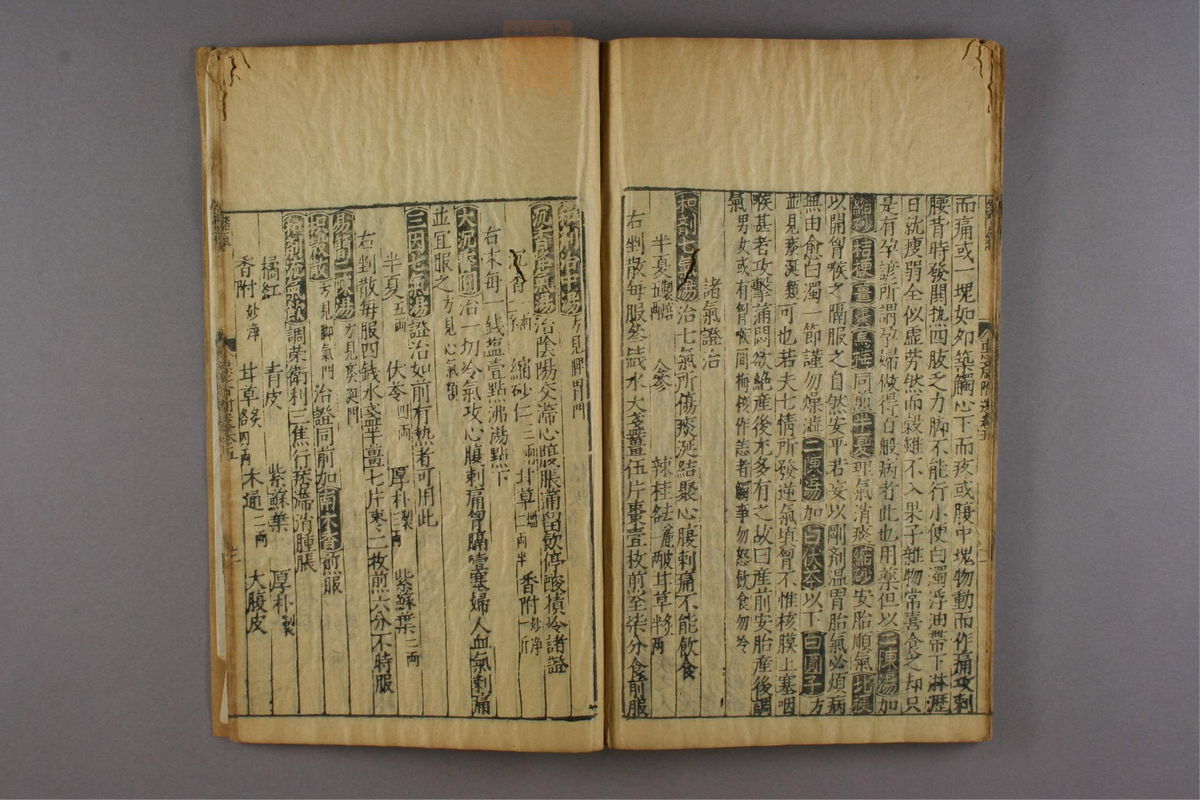 而痛或一塊如夘築觸心下而疼或腹中塊物動而作痛攻刺
腰背時發開抗四肢之力脚不能行小便白濁浮油帶下淋瀝
日就瘦弱全似虛劳然而穀雖不入果子雜物常喜食之却只
是有孕諺所謂孕婦做得百般病者此也用藥但以二陳湯加
縮砂桔梗薑棗烏梅同煎半夏理氣消痰縮砂安胎順氣北梗
以開胷喉之隔服之自然安平若妄以剛剤温胃胎氣必煩病
無由愈白濁一節謹勿燥澁二陳湯加白伏苓以下白圓子方
並見痰涎類可也若夫七情所發逆氣填胷不惟核膜上塞咽
喉甚者攻擊滿悶欲絶産後尤多有之故曰産前安胎産後調
氣男女或有胷喉間梅核作恙者觸事勿怒飲食勿冷
諸氣證治
和剤七氣湯治七氣所傷痰涎結聚心腹刺痛不能飲食
半夏 參 辣桂各一兩 甘草半兩
右剉散每服叁錢水大盞薑伍片棗壹枚煎至柒分食前服
和剤治中湯方見脾胃門
沉香降氣湯治陰陽交滯心腹脹滿留飲停酸積冷諸證
沉香 縮砂仁 甘草 香附炒淨一斤
右末每一錢盐壹點沸湯點下
大沉香圓治一切冷氣攻心腹刺痛胷膈噎塞婦人血氣刺痛
並宜服之方見心氣類
三因七氣湯證治如前有熱者可用此
半夏五兩 伏苓四兩 厚朴製三兩 紫蘇葉二兩
右剉散每服四錢水盞半薑七片棗二枚煎六分不時服
易簡二陳湯方見痰涎門
方見脚氣門 治證同前加南木香煎服
和剤流氣飲調荣衛利三焦行痞滯消腫脹
橘紅 青皮 紫蘇葉 厚朴製
香附炒淨 甘草炙各四兩 木通二兩 大腹皮